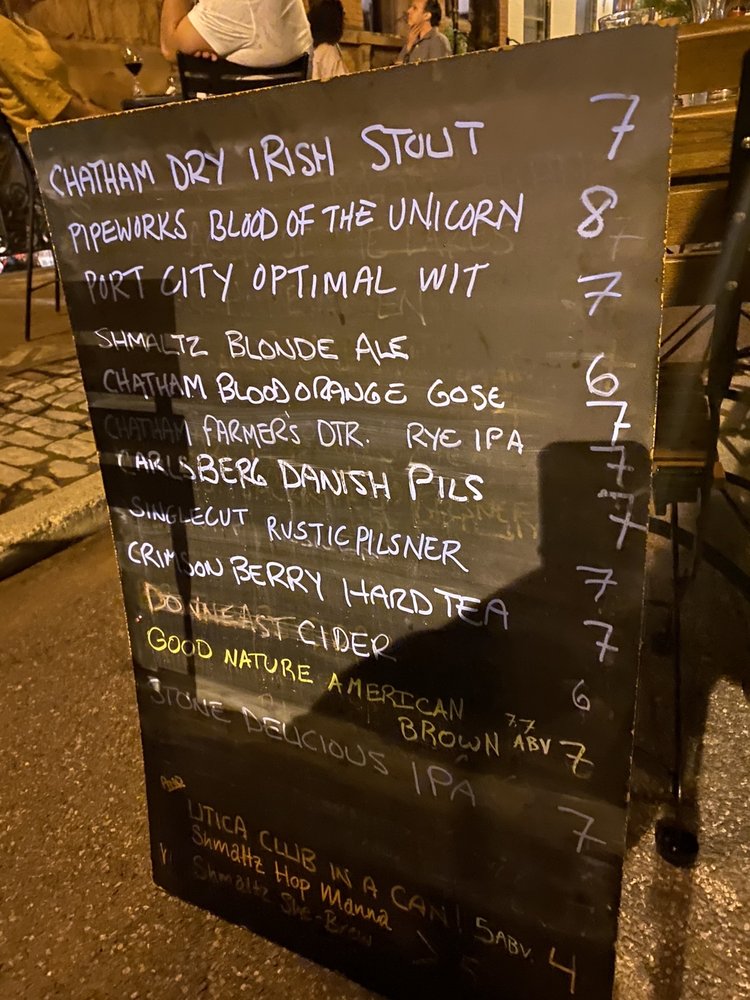 CHATHAM DRY IRISH STOUT 7
PIPEWORKS BLOOD OF THE UNICORN 8
PORT CITY OPTIMAL WIT 7
SHMALTZ BLONDE ALE 6
CHATHAM BLOOD ORANGE GOSE 7
CHATHAM FARMER'S DTR. RYE IPA 7
CARLSBERG DANISH PILS 7
SINGLECUT RUSTIC PILSNER 7
CRIMSON BERRY HARD TEA 7
DOWNEAST CIDER 6
GOOD NATURE AMERICAN
BROWN 7.7 ABV 7
STONE DELICIOUS IPA 7
UTICA CLUB IN A CAN! 5 ABV. 4
Shmaltz Hop Manna
Shmaltz She-Brew 5